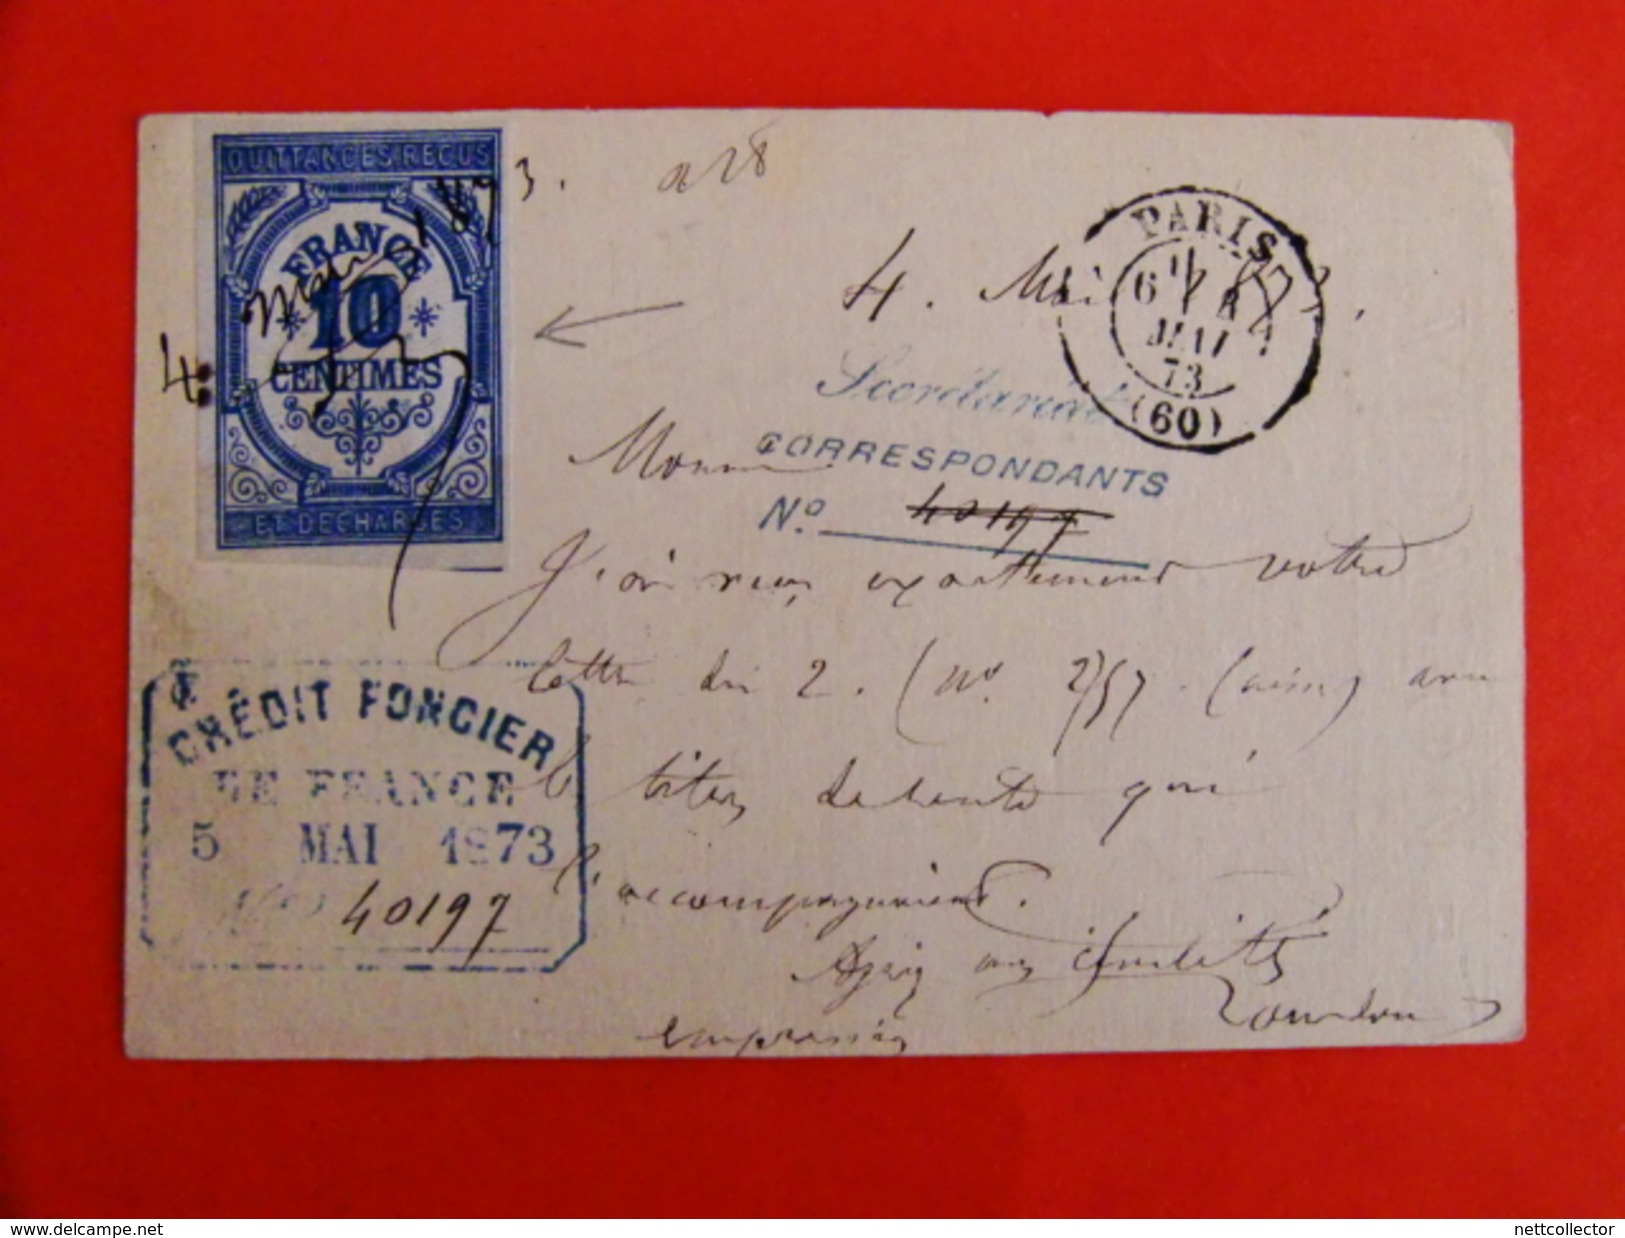 QUITTANCES, REÇUS
FRANCE
10
CENTIMES
ET DÉCHARGES
4 Mai 1873.
PARIS
6
MAI
73
(60)
4. Mai
Secrétariat
CORRESPONDANTS
No. 40197
Monsieur
J'ai reçu exactement votre
lettre du 2. (No. 2757. avec
le titre de rente qui
l'accompagnait.
CRÉDIT FONCIER
DE FRANCE
5 MAI 1873
40197
Agréez mes civilités
empressées
www.delcampe.net
nettcollector